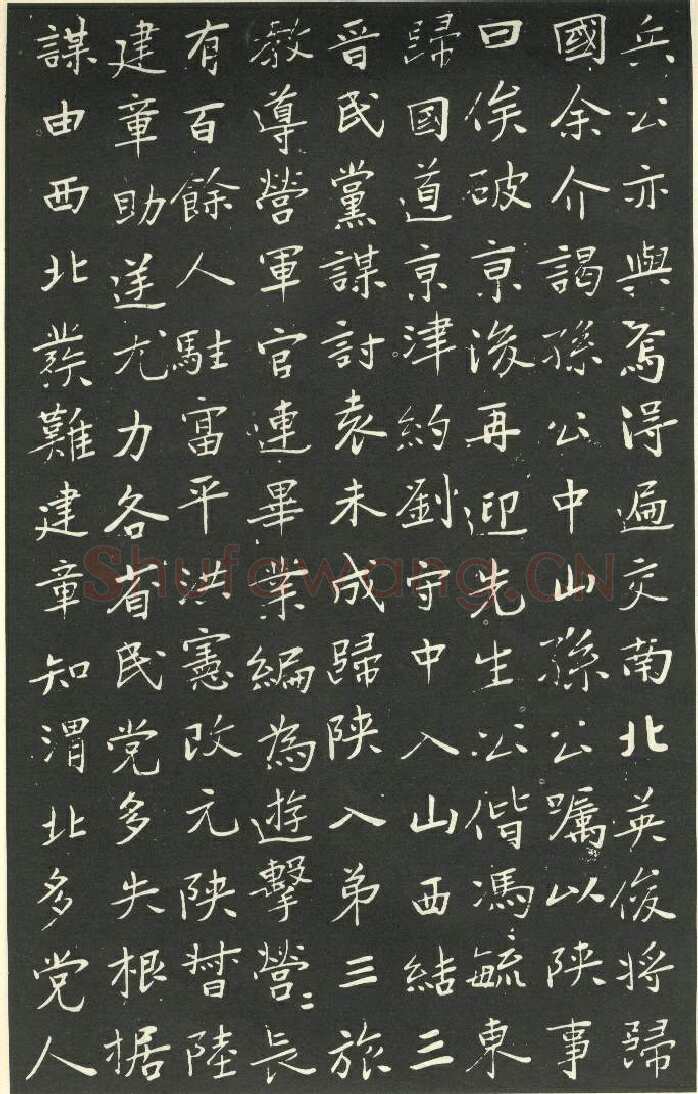 兵公亦與焉淂遍交南北英俊將歸
國余介謁孫公中山孫公嘱以陕事
曰俟破京後再迎先生公偕馮毓東
歸國道京津約劉守中入山西結三
晋民黨謀討袁未成歸陕入弟三旅
教導營軍官連畢業編為遊擊營〻長
有百餘人駐富平洪憲改元陕督陸
建章助逆尤力各省民党多失根据
謀由西北發難建章知渭北多党人
Shufawang.CN